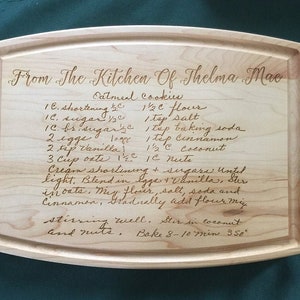 From The Kitchen Of Thelma Mae
Oatmeal Cookies
1 C. shortening ½C 1½ C flour
1 C. sugar ½C 1 tsp salt
1 C. br. sugar ½C 1 tsp baking soda
2 eggs 1 tsp cinnamon
2 tsp Vanilla 1½ C coconut
3 cup oats 1½C 1 C Nuts
Cream shortening + sugars until
light. Blend in eggs + Vanilla. Stir
in oats. Mix flour, salt, soda and
Cinnamon. Gradually add flour mix
stirring well. Stir in coconut
and nuts. Bake 8-10 min 350°